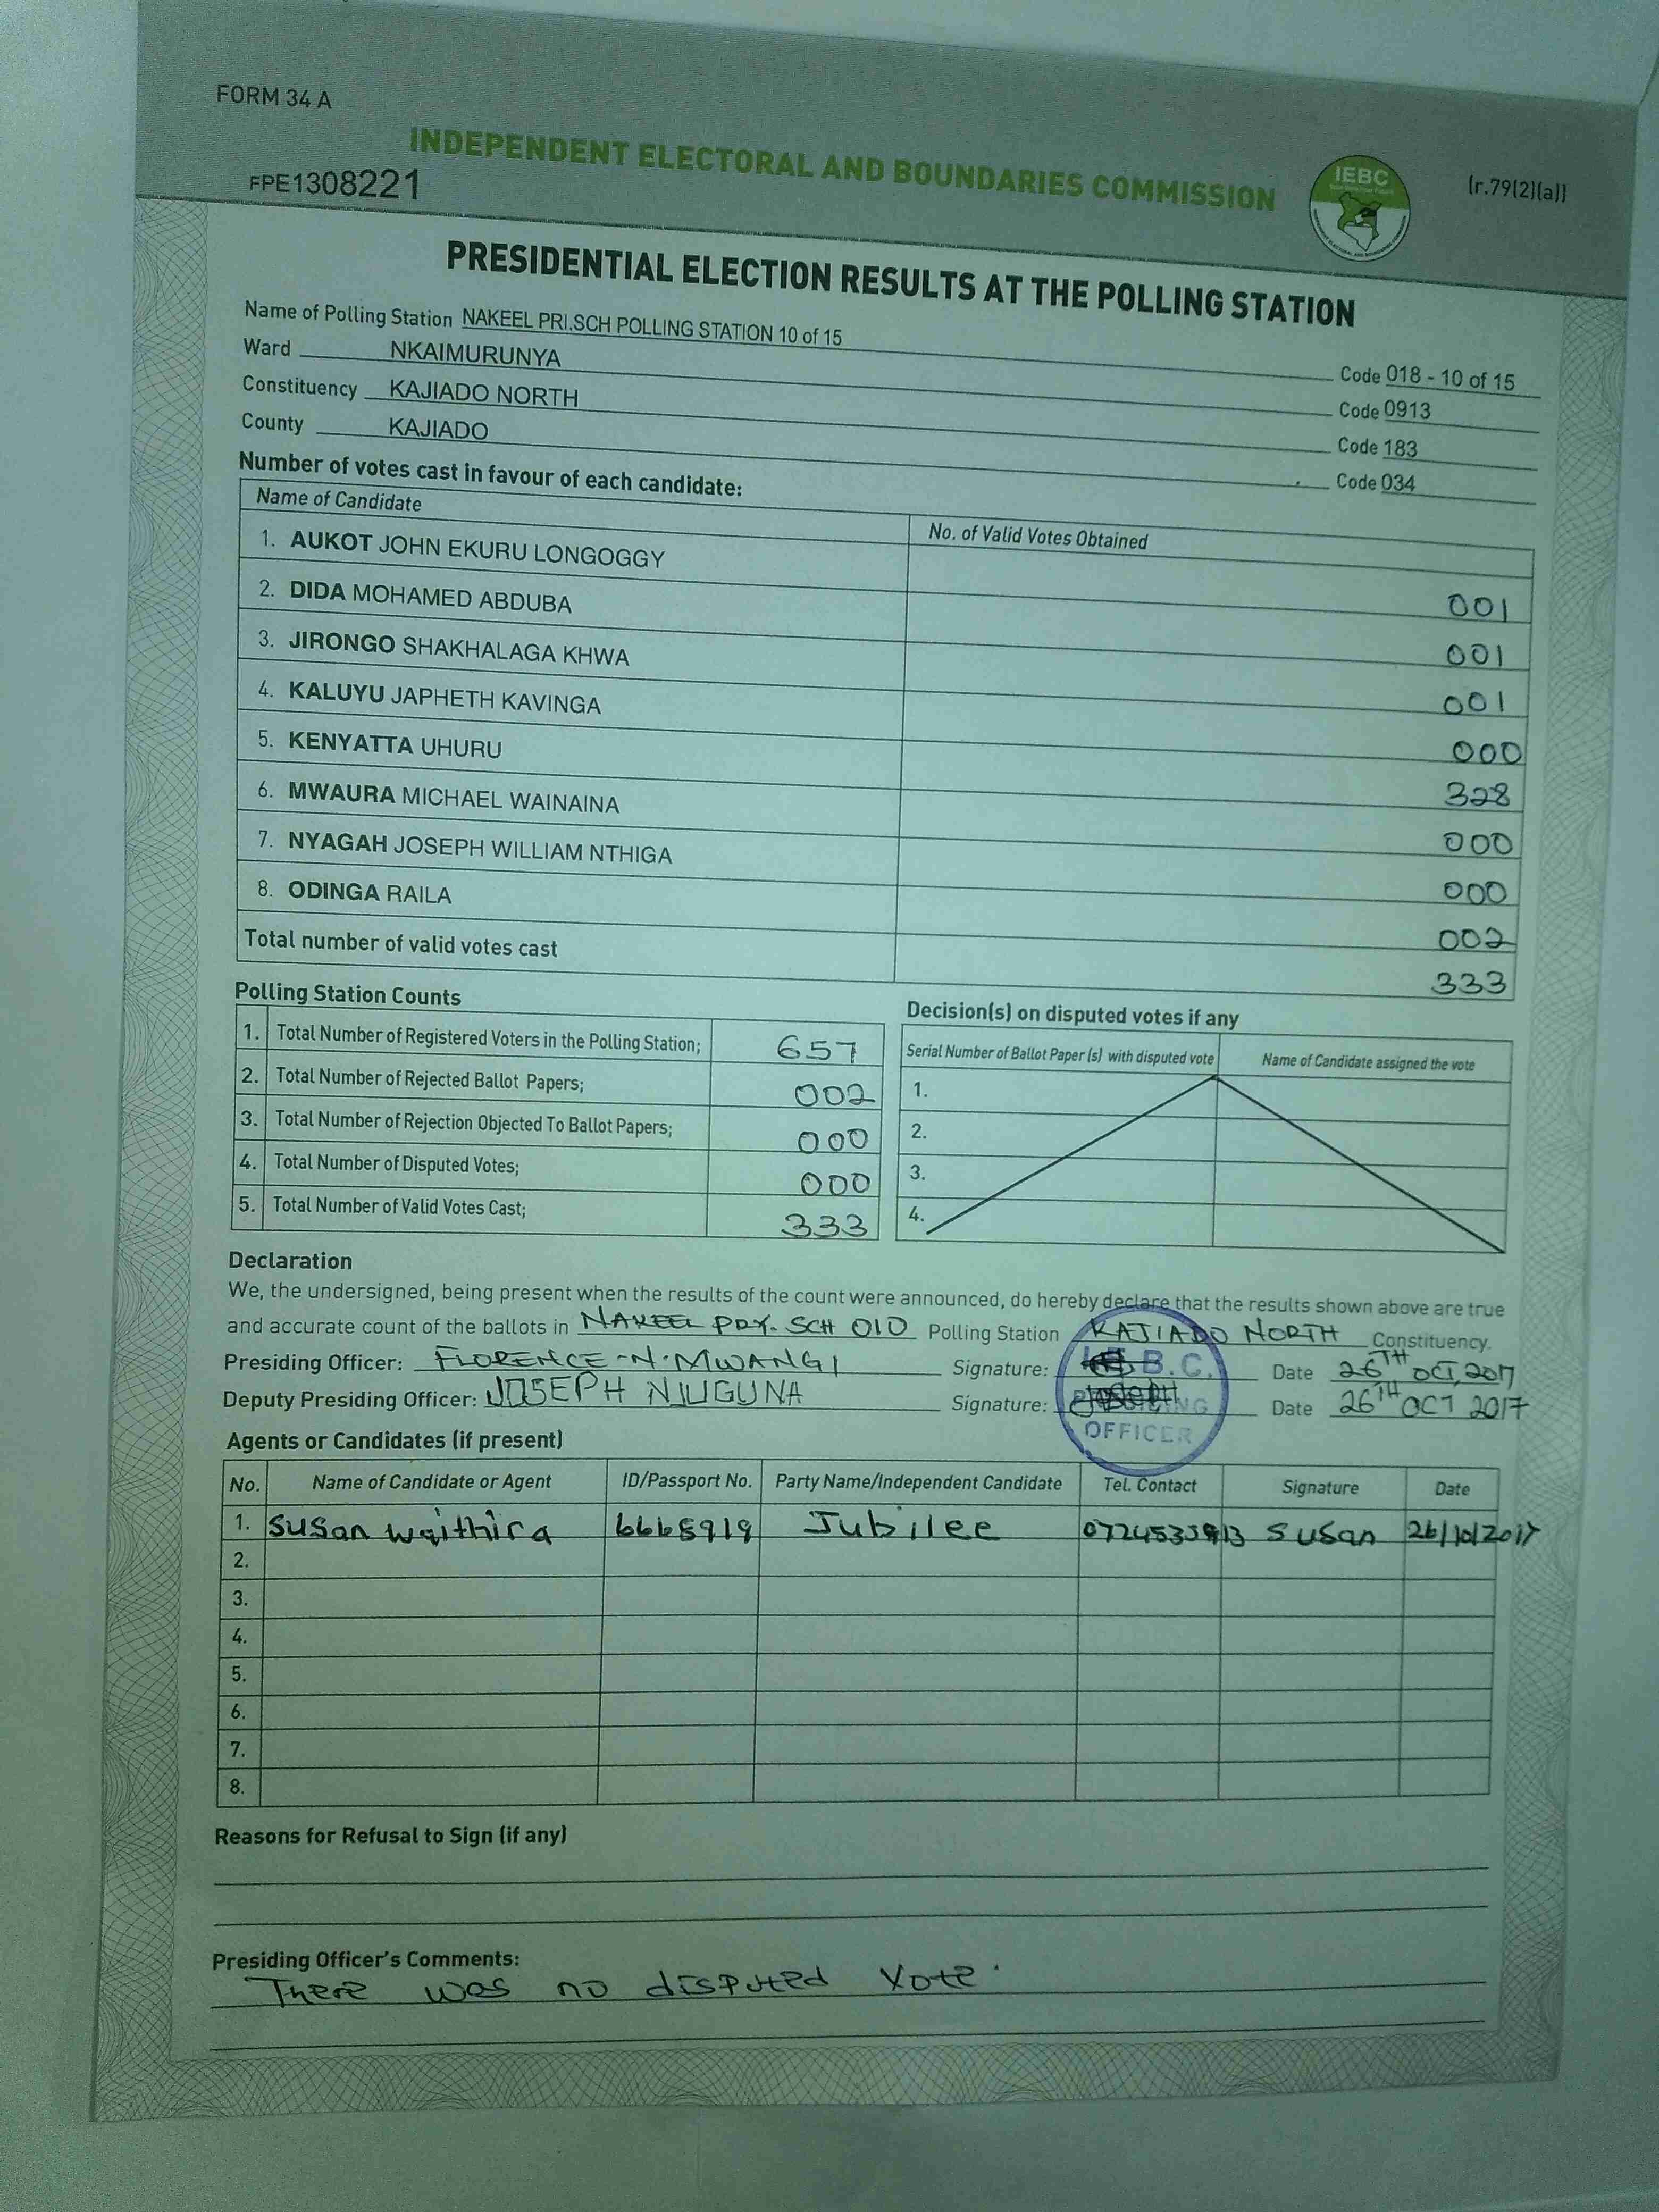 FORM 34 A
INDEPENDENT ELECTORAL AND BOUNDARIES COMMISSION
IEBC
(r.79(2)(a))
FPE1308221
PRESIDENTIAL ELECTION RESULTS AT THE POLLING STATION
Name of Polling Station NAKEEL PRI.SCH POLLING STATION 10 of 15 Code 018 - 10 of 15
Ward NKAIMURUNYA Code 0913
Constituency KAJIADO NORTH Code 183
County KAJIADO Code 034
Number of votes cast in favour of each candidate:
Name of Candidate No. of Valid Votes Obtained
1. AUKOT JOHN EKURU LONGOGGY 001
2. DIDA MOHAMED ABDUBA 001
3. JIRONGO SHAKHALAGA KHWA 001
4. KALUYU JAPHETH KAVINGA 000
5. KENYATTA UHURU 328
6. MWAURA MICHAEL WAINAINA 000
7. NYAGAH JOSEPH WILLIAM NTHIGA 000
8. ODINGA RAILA 002
Total number of valid votes cast 333
Polling Station Counts
1. Total Number of Registered Voters in the Polling Station; 657
2. Total Number of Rejected Ballot Papers; 002
3. Total Number of Rejection Objected To Ballot Papers; 000
4. Total Number of Disputed Votes; 000
5. Total Number of Valid Votes Cast; 333
Decision(s) on disputed votes if any
Serial Number of Ballot Paper (s) with disputed vote Name of Candidate assigned the vote
1.
2.
3.
4.
Declaration
We, the undersigned, being present when the results of the count were announced, do hereby declare that the results shown above are true
and accurate count of the ballots in NAKEEL PRY. SCH 010 Polling Station KAJIADO NORTH Constituency.
Presiding Officer: FLORENCE -N. MWANGI Signature: Date 26TH OCT, 2017
Deputy Presiding Officer: JOSEPH NJUGUNA Signature: Joseph Date 26TH OCT 2017
I.E.B.C.
PRESIDING
OFFICER
Agents or Candidates (if present)
No. Name of Candidate or Agent ID/Passport No. Party Name/Independent Candidate Tel. Contact Signature Date
1. Susan waithira Jubilee Susan 26/10/2017
2.
3.
4.
5.
6.
7.
8.
Reasons for Refusal to Sign (if any)
Presiding Officer's Comments:
There was no disputed vote.